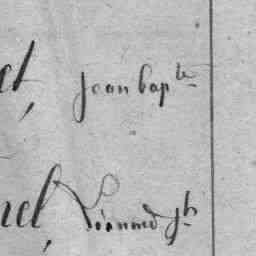 et, jean bapte
nel, Léonard jh